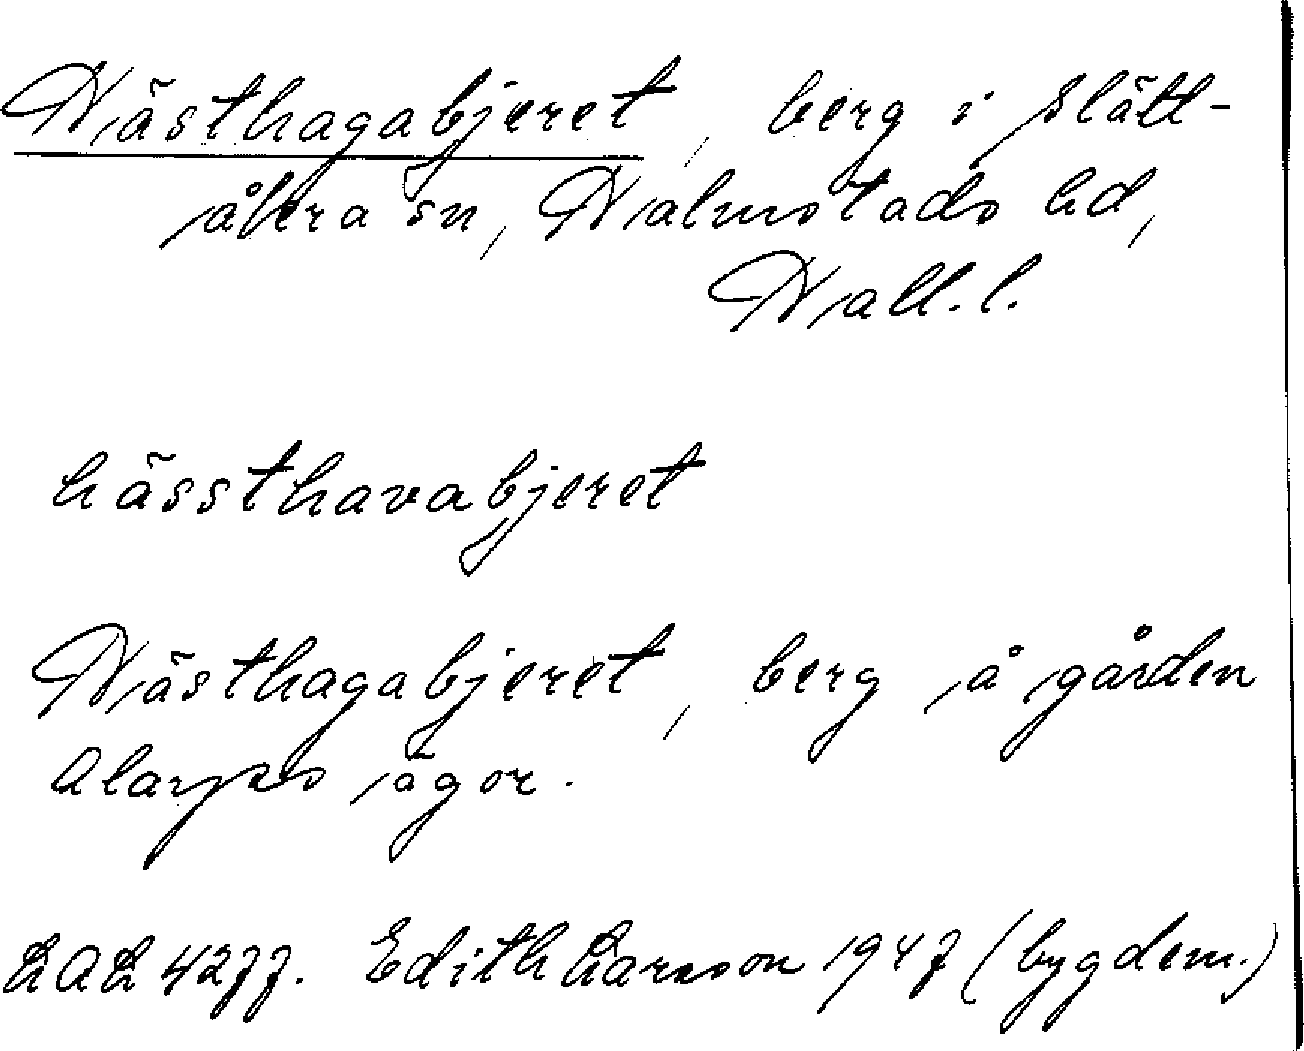 Hästhagabjeret, berg i Slätt-
åkra sn, Halmstads hd,
Hall.l.
hässthavabjeret
Hästhagabjeret, berg å gården
Alarps ägor.
LAL 4277. Edith Larsson 1947 (bygdem.)